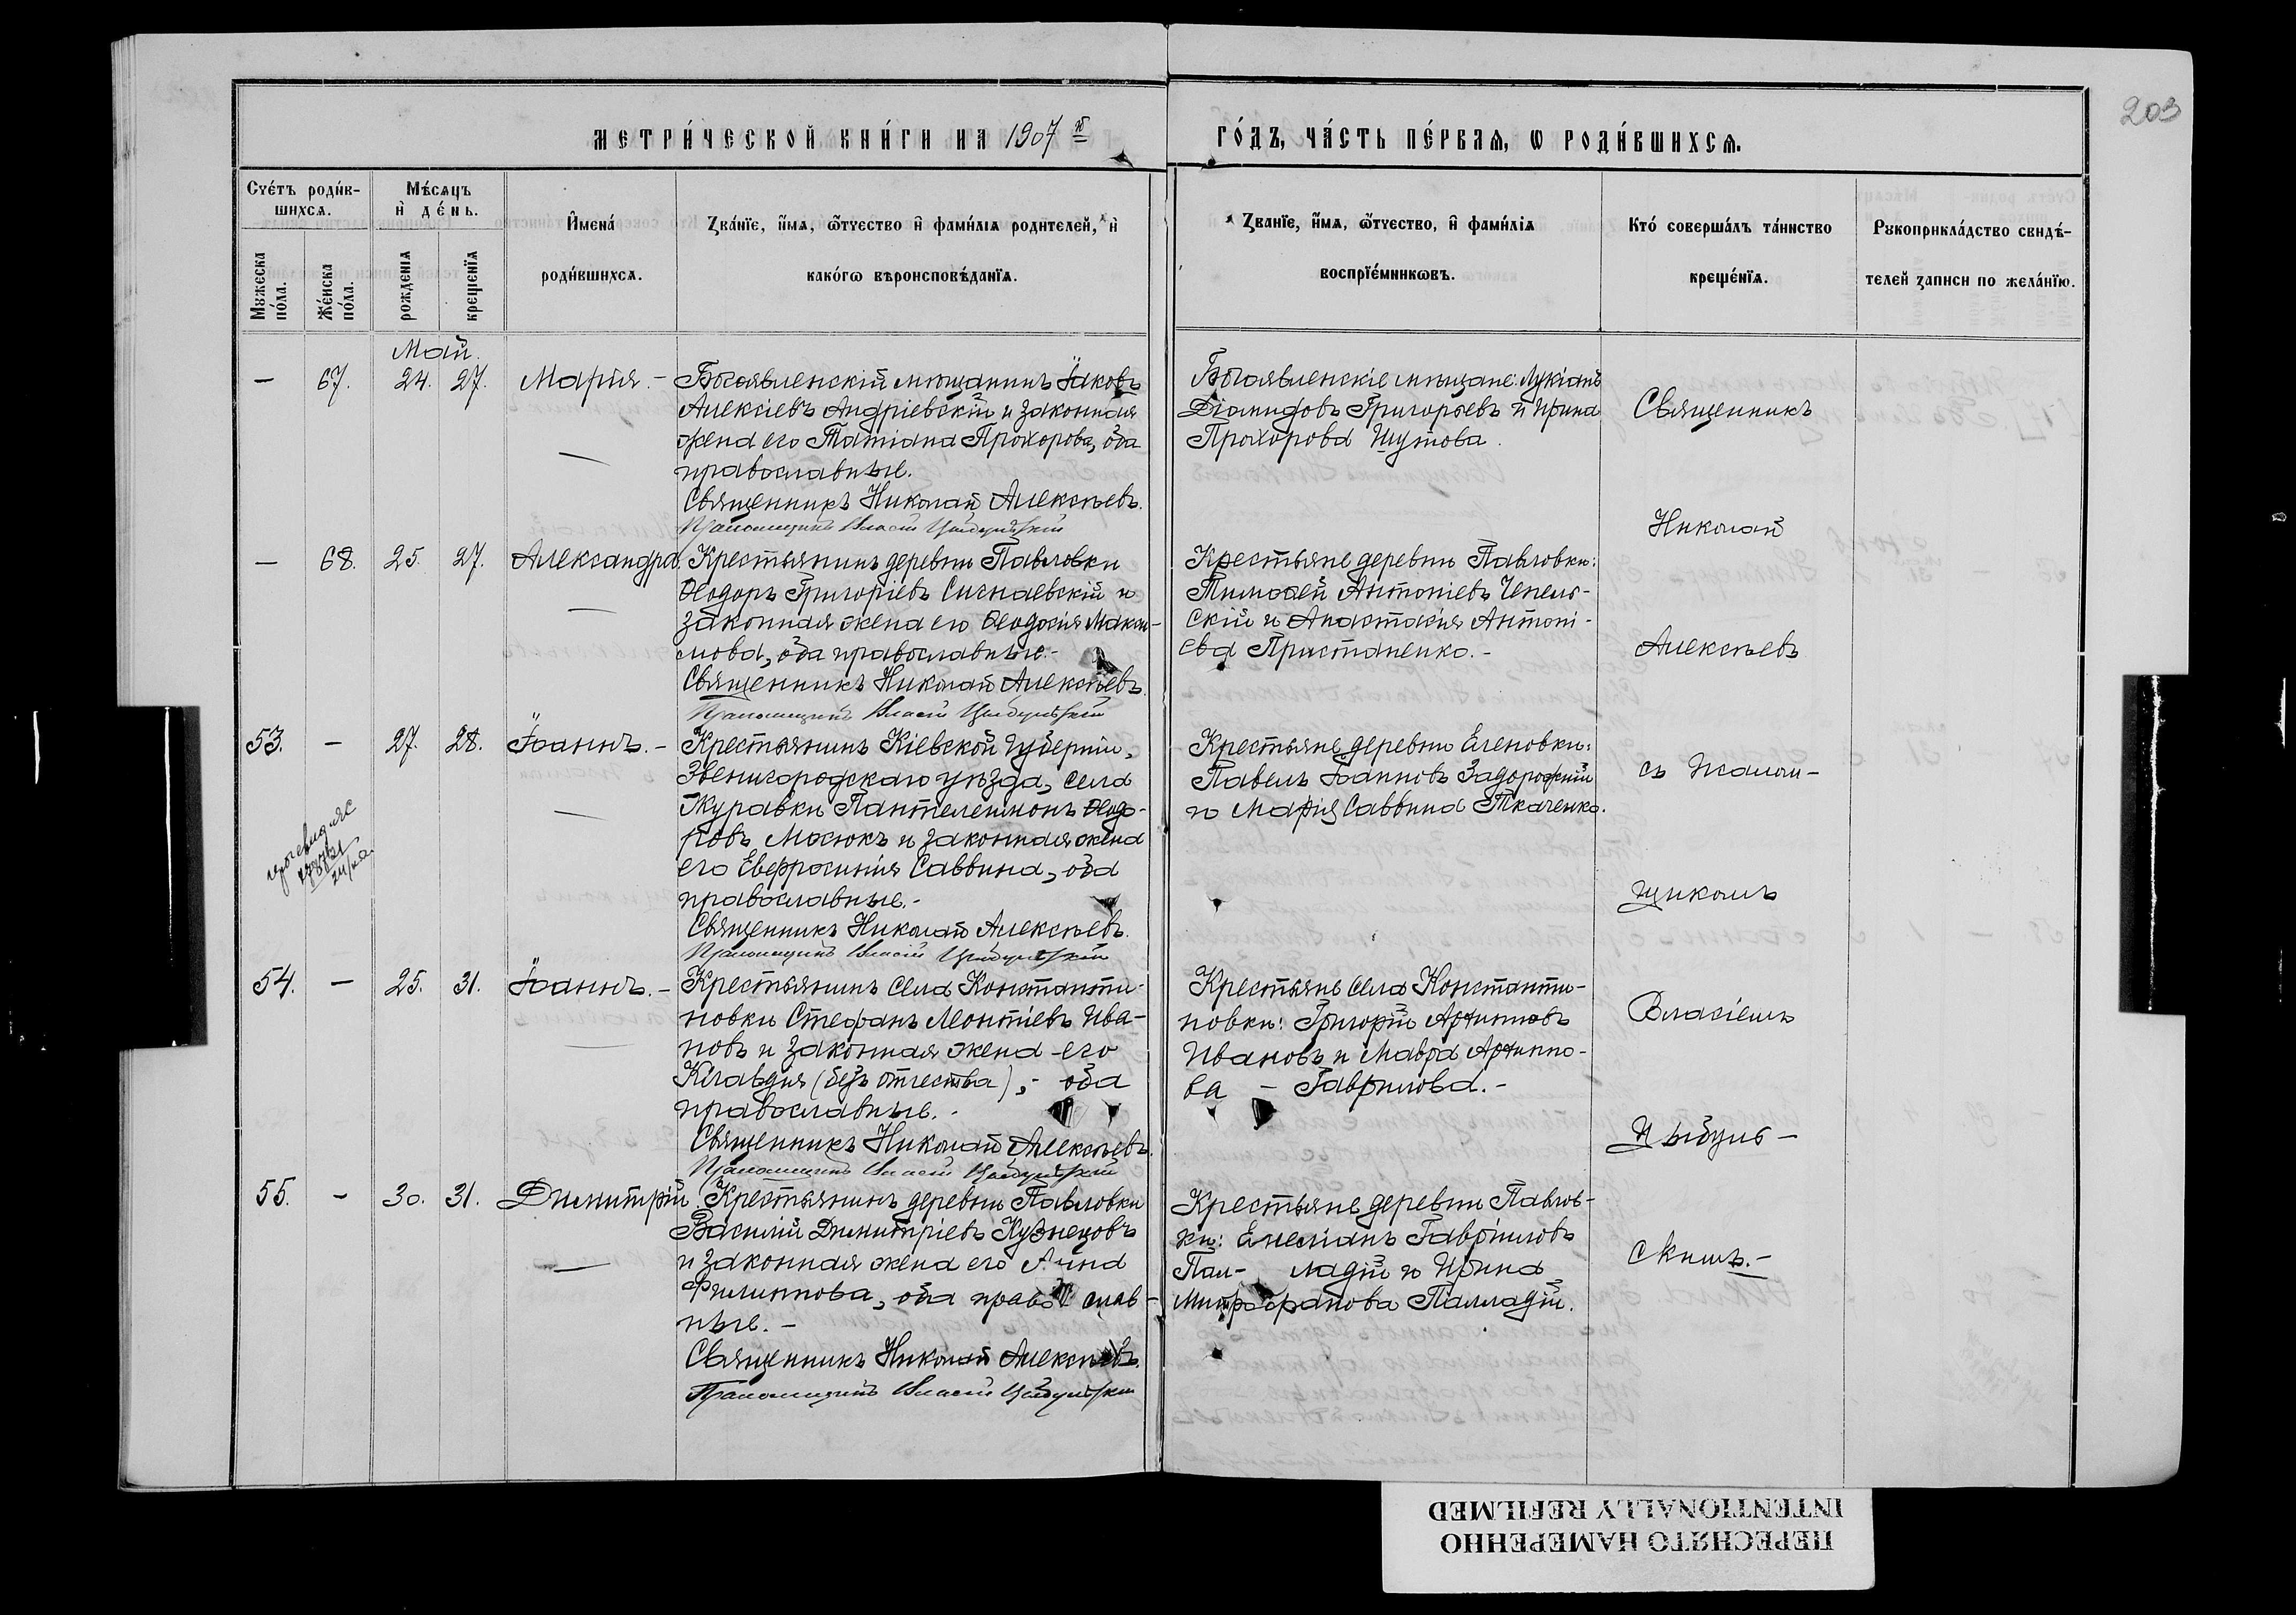 203
МЕТРИ́ЧЕСКОЙ КНИ́ГИ НА 1907 й ГО́ДЪ, ЧА́СТЬ ПЕ́РВАЯ, Ѡ РОДИ́ВШИХСЯ.
Счéтъ роди́в-
шихся.
Мѣ́сяцъ
и҆ де́нь.
И҆мена́
роди́вшихся.
Зва́нїе, и҆́мя, ѻ҆́тчество и҆ фами́лїа роди́телей, и҆
како́гѡ вѣроисповѣ́данїя.
Зва́нїе, и҆́мя, ѻ҆́тчество, и҆ фами́лїа
воспрїе́мникѡвъ.
Кто́ соверша́лъ та́инство
креще́нїя.
Рꙋкоприкла́дство свидѣ́-
телей записи по жела́нїю.
Мꙋжеска
по́ла.
Же́нска
по́ла.
рожденїя
крещенїя
Май.
— 67. 24. 27. Марія. —
Богоявленскій мѣщанинъ Іаковъ
Алексіевъ Андріевскій и законная
жена его Татіана Прохорова, оба
православные.
Священникъ Николай Алексѣевъ.
Псаломщикъ Власій Цыбульскій
Богоявленскіе мѣщане: Лукіанъ
Діамидовъ Григорьевъ и Ирина
Прохорова Шутова.
— 68. 25. 27. Александра.
Крестьянинъ деревни Павловки
Ѳеодоръ Григоріевъ Сигнаевскій и
законная жена его Ѳеодосія Макси-
мова, оба православные. -
Священникъ Николай Алексѣевъ.
Псаломщикъ Власій Цыбульскій
Крестьяне деревни Павловки:
Тимоѳей Антоніевъ Чепель-
скій и Анастасія Антоні-
ева Пристаненко. -
53. — 27. 28. Іоаннъ. —
Крестьянинъ Кіевской губерніи,
Звенигородскаго уѣзда, села
Журавки Пантелеимонъ Ѳеодо-
ровъ Мосюкъ и законная жена
его Евфросинія Саввина, оба
православные. -
Священникъ Николай Алексѣевъ.
Псаломщикъ Власій Цыбульскій
Крестьяне деревни Еленовки:
Павелъ Іоанновъ Задорожній
и Марія Саввина Ткаченко.
54. — 25. 31. Іоаннъ. —
Крестьянинъ села Константи-
новки Стефанъ Леонтіевъ Ива-
новъ и законная жена его
Клавдія (безъ отчества), - оба
православные. -
Священникъ Николай Алексѣевъ.
Псаломщикъ Власій Цыбульскій
Крестьяне села Константи-
новки: Григорій Архиповъ
Ивановъ и Мавра Архипо-
ва — Гаврилова. -
55. — 30. 31. Димитрій.
Крестьянинъ деревни Павловки
Василій Димитріевъ Кузнецовъ
и законная жена его Анна
Филиппова, оба православ-
ные. -
Священникъ Николай Алексѣевъ.
Псаломщикъ Власій Цыбульскій
Крестьяне деревни Павлов-
ки: Емеліанъ Гавріиловъ
Пал- ладій и Ирина
Митрофанова Палладій.
Священникъ
Николай
Алексѣевъ
съ Псалом-
щикомъ
Власіемъ
Цыбуль-
скимъ. -
ПЕРЕСНЯТО НАМЕРЕННО
INTENTIONALLY REFILMED